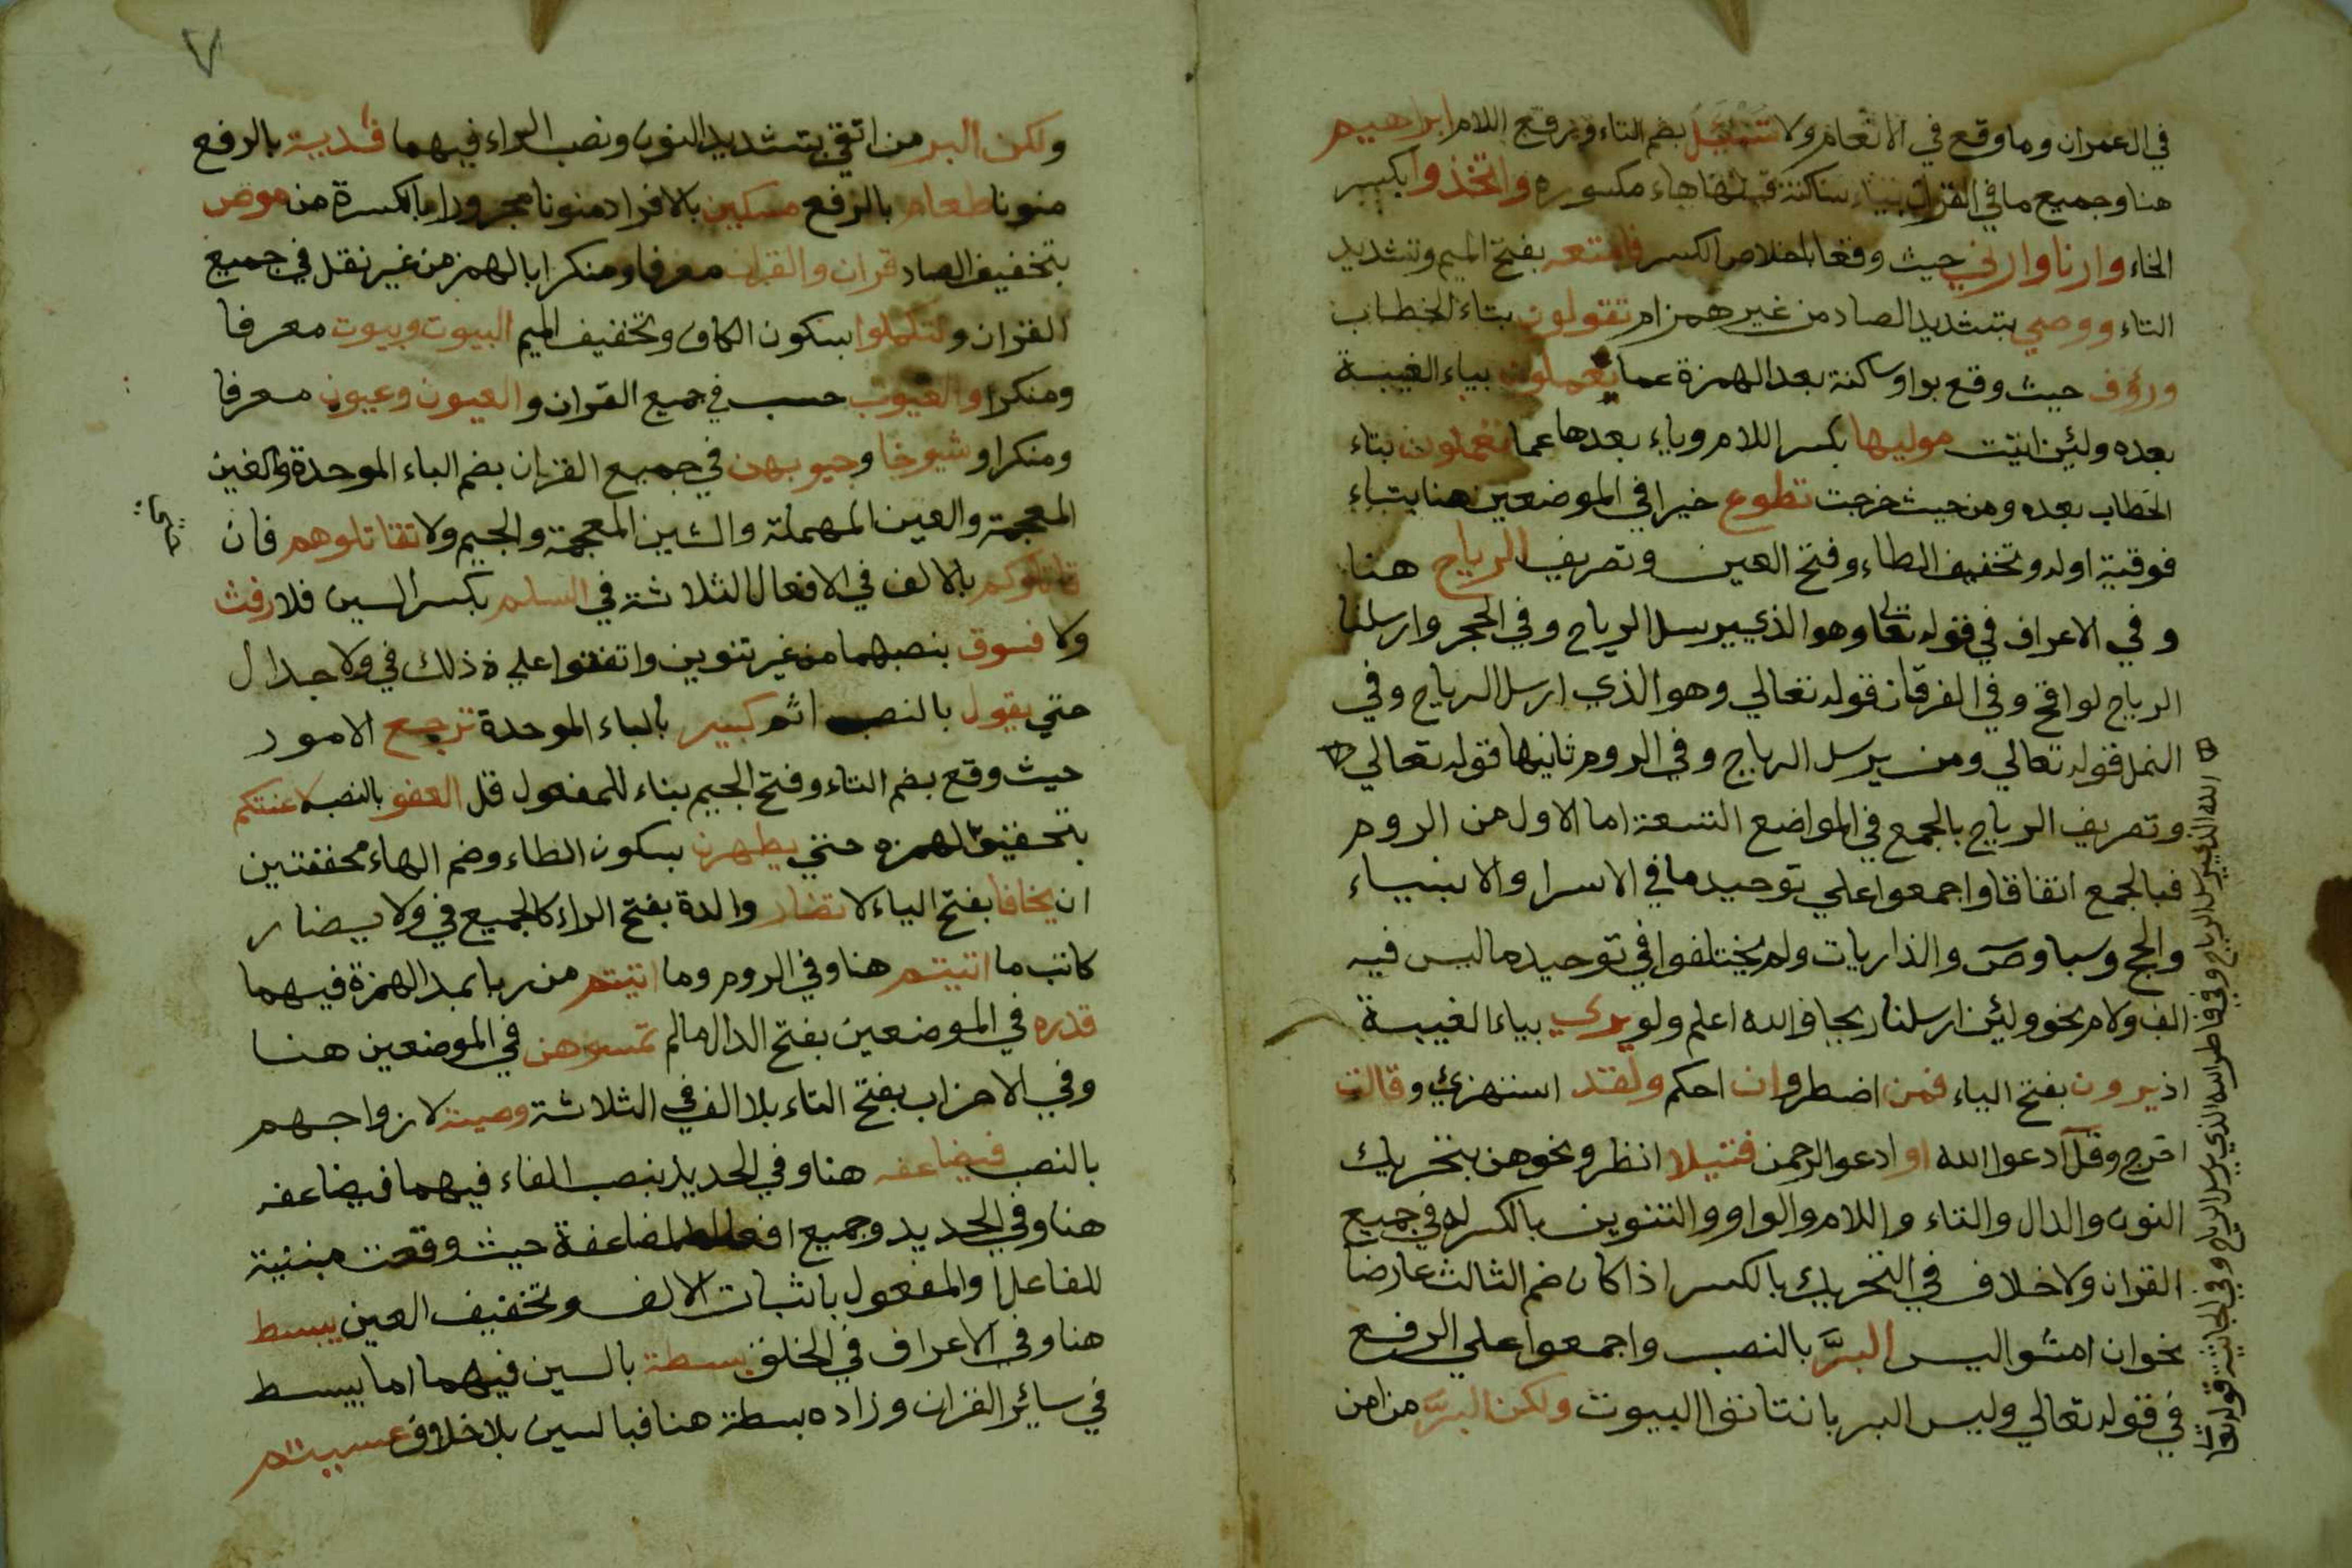 في ال عمران وما وقع في الانعام ولا تسئل بضم التاء ورفع اللام ابراهيم
هنا وجميع ما في القران بياء ساكنة قبلها هاء مكسوره واتخذوا بكسر
الخاء وارنا وارني حيث وقعا باخلاص الكسر فامتعه بفتح الميم وتشديد
التاء ووصي بتشديد الصاد من غير همز ام تقولون بتاء الخطاب
ورؤف حيث وقع بواو ساكنة بعد الهمزة عما يعملون بياء الغيبة
بعده ولئين اتيت موليها بكسر اللام وياء بعدها عما تعملون بتاء
الخطاب بعده ومن حيث خرجت تطوع خيرا في الموضعين هنا بتاء
فوقية اوله وتخفيف الطاء وفتح العين وتصريف الرياح هنا
وفي الاعراف في قوله تعالى وهو الذي يرسل الرياح وفي الحجر وارسلنا
الرياح لواقح وفي الفرقان قوله تعالي وهو الذي ارسل الرياح وفي
النمل قوله تعالي ومن يرسل الرياح وفي الروم ثانيها قوله تعالي
وتصريف الرياح بالجمع في المواضع التسعة اما الاول من الروم
فبالجمع اتفاقا واجمعوا علي توحيد ما في الاسرا والانبياء
والحج وسبا وص والذاريات ولم يختلفوا في توحيد ما ليس فيه
الف ولام نحو ولئن ارسلنا ريحا والله اعلم ولو يري بياء الغيبة
اذ يرون بفتح الياء فمن اضطر وان احكم ولقد استهزئ وقالت
اخرج وقل ادعوا الله او ادعوا الرحمن فتيلا انظر ونحوهن بتحريك
النون والدال والتاء واللام والواو والتنوين بالكسر له في جميع
القران ولا خلاف في التحريك بالكسر اذا كان ضم الثالث عارضا
نحو ان امشوا ليس البر بالنصب واجمعوا علي الرفع
في قوله تعالي وليس البر بان تاتوا البيوت ولكن البر من امن
الله الذي يرسل الرياح وفي فاطر الله الذي يرسل الرياح وفي الجاثية قوله تعالى
٧
ولكن البر من اتقي بتشديد النون ونصب الراء فيهما فدية بالرفع
منونا طعام بالرفع مسكين بالافراد منونا مجرورا بالكسرة من موص
بتخفيف الصاد قران والقران معرفا ومنكرا بالهمز من غير نقل في جميع
القران ولتكملوا بسكون الكاف وتخفيف الميم البيوت وبيوت معرفا
ومنكرا والغيوب حسب في جميع القران والعيون وعيون معرفا
ومنكرا وشيوخا وجيوبهن في جميع القران بضم الباء الموحدة والغين
المعجمة والعين المهملة والشين المعجمة والجيم ولا تقاتلوهم فان
قاتلوكم بالالف في الافعال الثلاثة في السلم بكسر السين فلا رفث
ولا فسوق بنصبهما من غير تنوين واتفقوا علي ذلك في ولا جدال
حتي يقول بالنصب اثم كبير بالباء الموحدة ترجع الامور
حيث وقع بضم التاء وفتح الجيم بناء للمفعول قل العفو بالنصب لاعنتكم
بتحقيق الهمزه حتي يطهرن بسكون الطاء وضم الهاء مخففتين
ان يخافا بفتح الياء لا تضار والدة بفتح الراء كالجميع في ولا يضار
كاتب ما اتيتم هنا وفي الروم وما اتيتم من ربا بمد الهمزة فيهما
قدره في الموضعين بفتح الدال ما لم تمسوهن في الموضعين هنا
وفي الاحزاب بفتح التاء بلا الف في الثلاثة وصية لازواجهم
بالنصب فيضاعفه هنا وفي الحديد بنصب الفاء فيهما فيضاعفه
هنا وفي الحديد وجميع افعال المضاعفة حيث وقعت مبنية
للفاعل او المفعول باثبات الالف وتخفيف العين يبسط
هنا وفي الاعراف في الخلق بسطة بالسين فيهما اما يبسط
في سائر القران وزاده بسطة هنا فبالسين بلا خلاف عسيتم